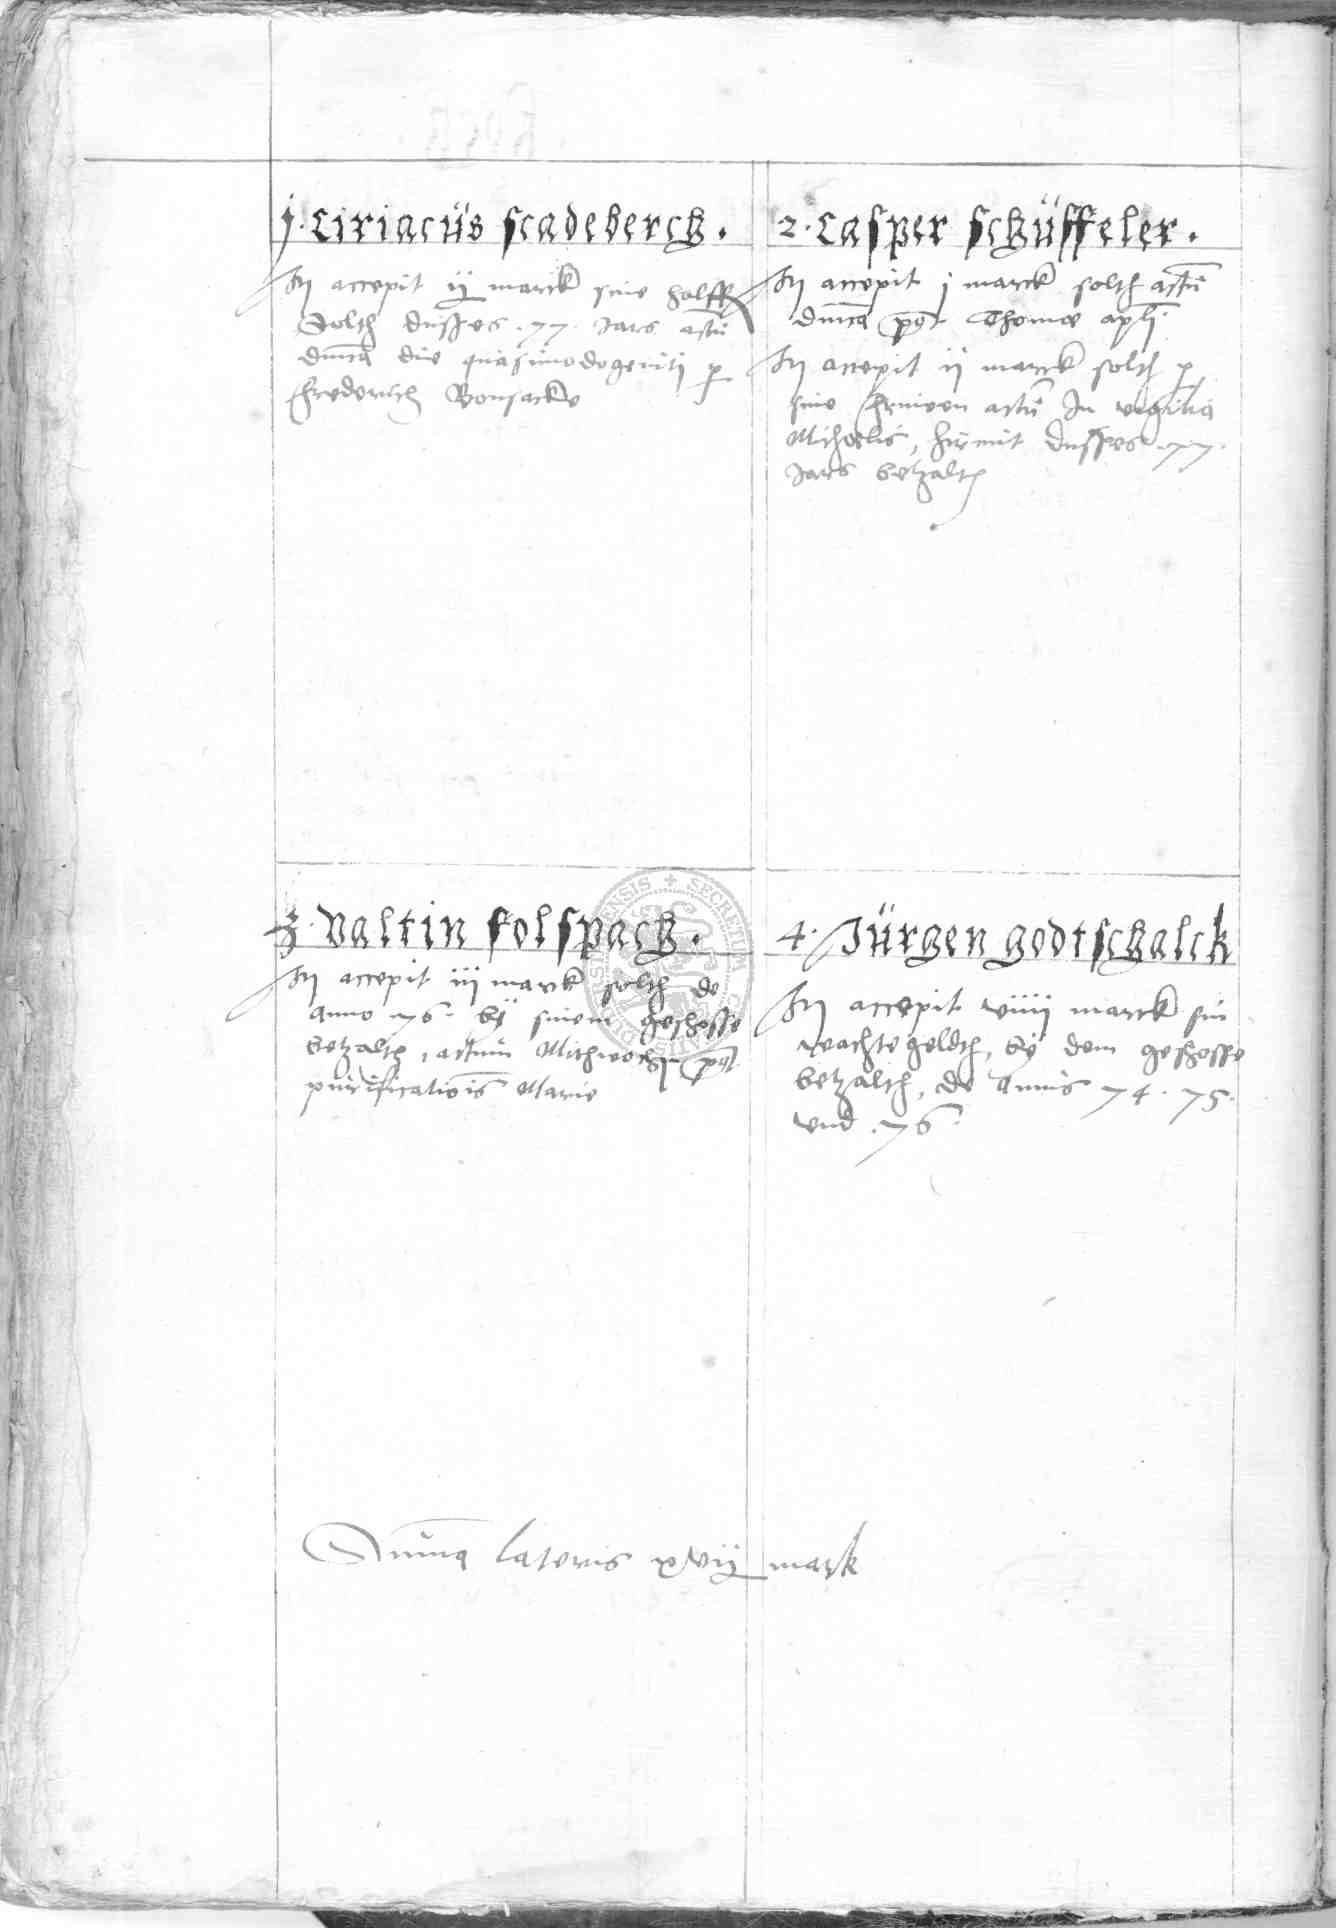 1. Ciriacüs scadeberch.
Hy accepit ij marck sine halff
Solth dusses .77. Jars actū
dnica die quasimodogeniti p
frederich Bonsacke
2. Casper schüffeler.
Hy accepit j marck solth actū
dnica post Thomae apli.
Hy accepit ij marck solth p
sine fruwen actū In vigilia
Michaelis, hirmit dusses .77.
Jars betzalth
3. Valtin folspach.
Hy accepit iij marck solth de
anno 76. by sinem geschosse
betzalth, actum Mithwochs post
purificatiois Marie
4. Jürgen godtschalck
Hy accepit viiij marck sin
wachtegeldth, by dem geschosse
betzalth, de annis 74. 75.
vnd .76.
Suma lateris xvij mark